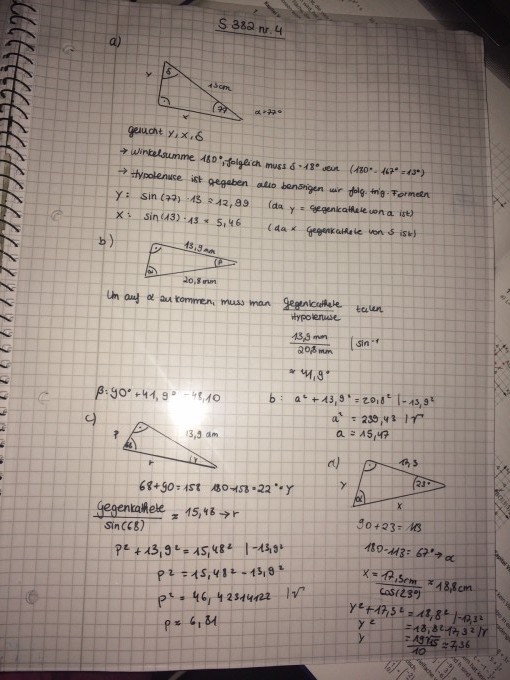 S 382 nr. 4
a)
y
δ
13cm
77
x
α=77°
gesucht y, x, δ
→ Winkelsumme 180°, folglich muss δ=13° sein (180°-167°=13°)
→ Hypotenuse ist gegeben also benötigen wir folg. trig. Formeln
y: sin(77)·13=12,99 (da y = Gegenkathete von α ist)
x: sin(13)·13 = 5,46 (da x Gegenkathete von δ ist)
b)
13,9mm
α
β
20,8mm
Um auf α zu kommen, muss man Gegenkathete
Hypotenuse
teilen
13,9mm
20,8mm
| sin⁻¹
≈ 41,9°
β=90°+41,9°=48,10
b: a²+13,9²=20,8² |-13,9²
a² = 239,43 |√
a = 15,47
c)
p
13,9 dm
68
γ
r
68+90=158 180-158=22°=γ
Gegenkathete
sin(68)
= 15,48→r
p²+13,9²=15,48² |-13,9²
p²=15,48²-13,9²
p²=46,42314122 |√
p=6,81
d)
17,3
y
23°
α
x
90+23=113
180-113=67°→α
x = 17,3cm
cos(23°)
= 18,8cm
y²+17,3²=18,8² |-17,3²
y² = 18,8²-17,3² |√
y
10
= 7,36